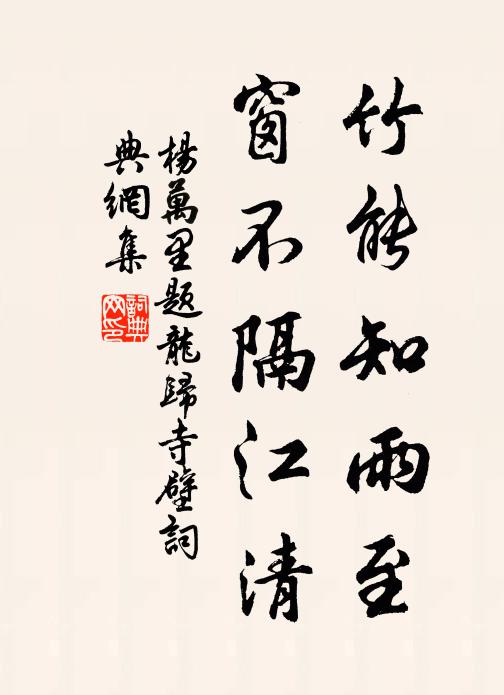 竹能知雨至
窗不隔江清
楊萬里題龍歸寺壁詞
典網集
詞典
网印